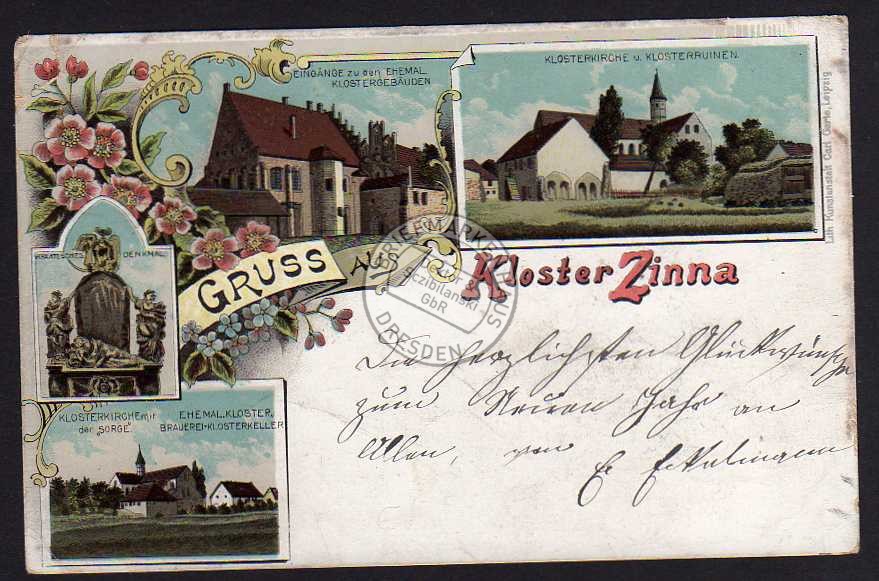 EINGÄNGE zu den EHEMAL.
KLOSTERGEBÄUDEN
KLOSTERKIRCHE u. KLOSTERRUINEN.
Lith. Kunstanstalt Carl Garte, Leipzig
DENKMAL.
GRUSS AUS Kloster Zinna
BRIEFMARKENHAUS
Sczibilanski
GbR
DRESDEN
KLOSTERKIRCHE mit
der „SORGE".
EHEMAL. KLOSTER,
BRAUEREI-KLOSTERKELLER
Die herzlichsten Glückwünsche
zum Neuen Jahr an
Allen, von